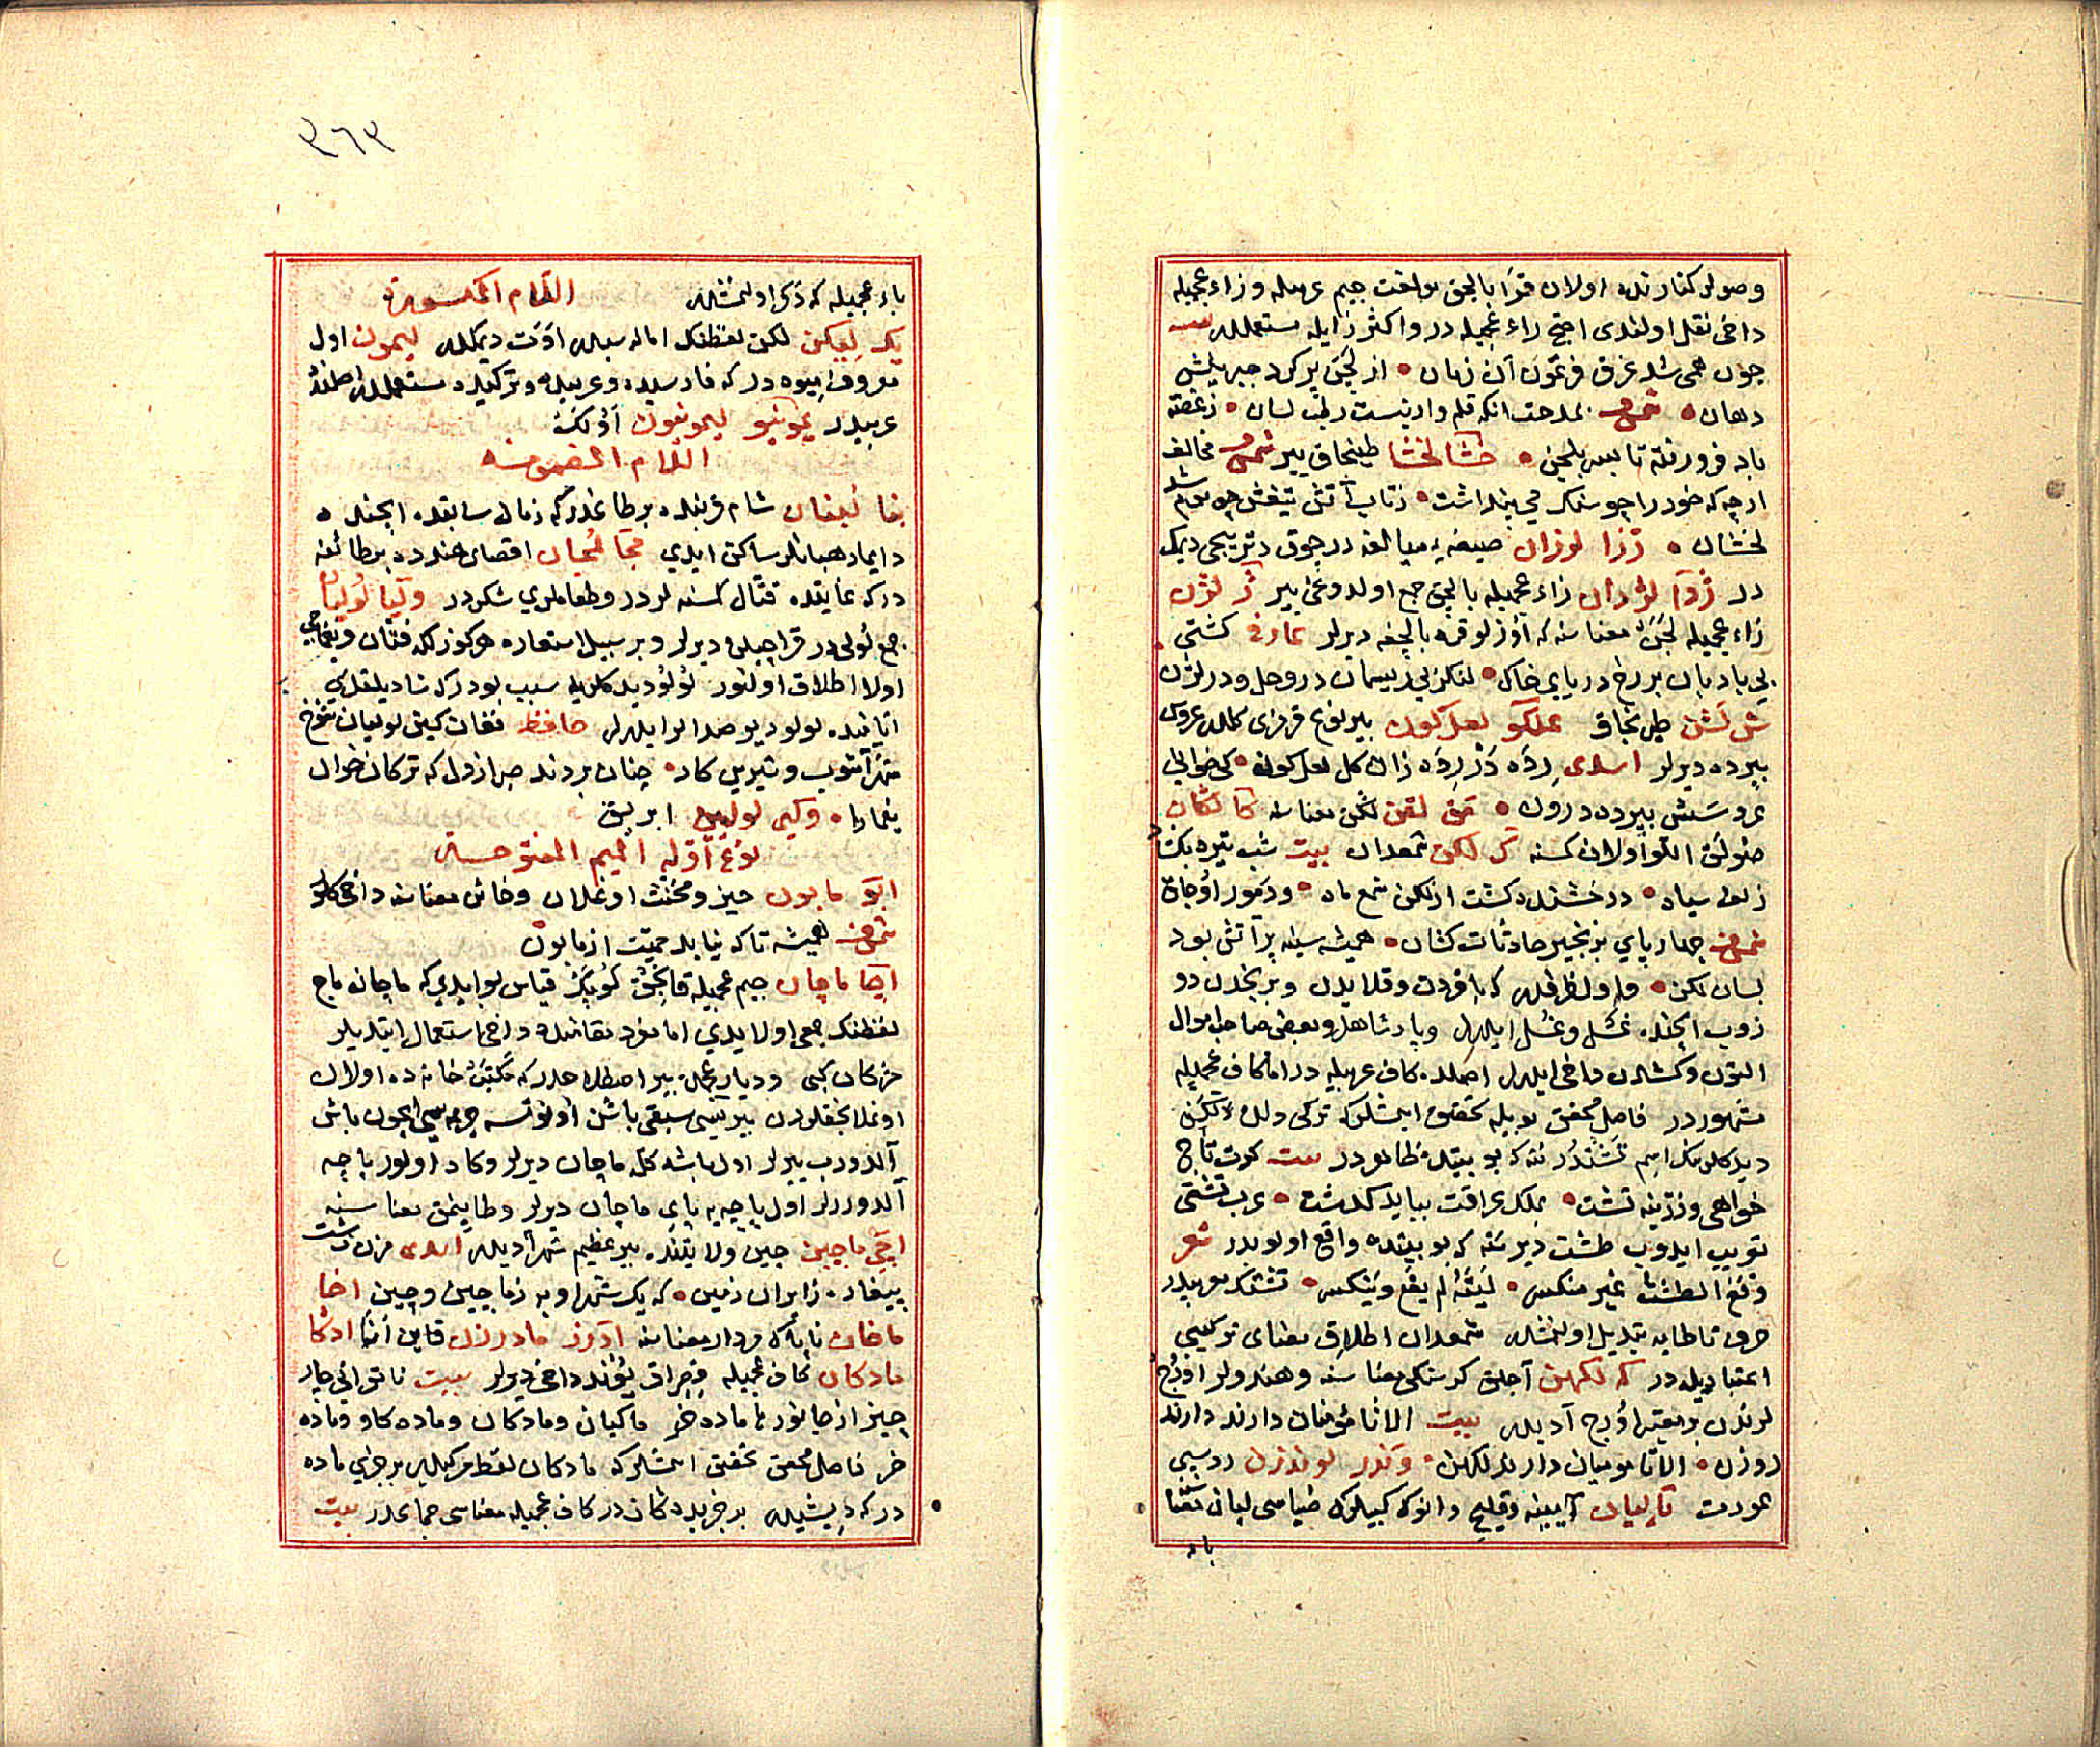 وصولر کنارنده اولان قرا بالچق بولغت جیم عربیله و زاء عجمیله
داخی نقل اولندی اجتح زاء عجمیله در و اکثر زایله مستعملدر بیت
چون همی شد غرق فرعون آن زمان • از لجن پر کرد جبریلش
دهان • شمس بمدحت انکه قلم وار نیست رطب لسان • زغصه
باد فرو رفته تا بسر بلجن • خشا لخشا طینجاق ییر شمس مخالف
ارچه که خود را چو سنک می پنداشت • زتاب آتش تیغش چو موم شد
لخشان • رزا لرزان صیغه مبالغه در چوق دتریجی دیمک
در ژدا لژدان زاء عجمیله بالچق جمع اولدوغی ییر ژ لژن
زاء عجمیله لجن معناسنه که اوزلو قره بالچغه دیرلر عارف کشتی
بی بادبان بر رخ دریای خاک • لنکر بی ریسمان در وحل و در لژن
ش لشن طینجاق عملکو لعل کون بیر نوع قرمزی کلدر عروس
بیرده دیرلر اسدی رده در رده زان کل لعل کون • که خوانی
عروسش بپرده درون • مق لقن لکن معناسنه کا لکان
صولق اللو اولان کسنه کر لکن شمعدان بیت شب تیره بکشاد
زلف سیاه • درخشنده کشت از لکن شمع ماه • و دمور اوجاق
شمس چهار پای بزنجیر حادثات کشان • همیشه سینه پر آتش بود
بسان لکن • و اول ظرفدر که باقردن و قلایدن و برنجدن دو
زوب ایچنده غسل و غسل ایلرلر و پادشاهلر و بعضی صاحب اموال
التون و کمشدن داخی ایلرلر اصلده کاف عربیله در اما کاف عجمیله
مشهور در فاضل محقق بویله تحقیق ایتمشلر که ترکی دلنده لکن
دید کلرینک اسم تشتدر نته که بو بیتده ظاهر در بیت کرت تاج
خواهی و زرینه تشت • بملک عراقت بباید کذشت • عرب تشتی
تعریب ایدوب طشت دیر نته که بو بیتده واقع اولوبدر شعر
وقع الطشت غیر منکس • لیته لم یقع و ینکس • تشتک معربیدر
حرف تا طایه تبدیل اولنمشدر شمعدان اطلاق معنای ترکیبی
اعتباریله در که لکهن آجلق کرسنکی معناسنه و هندولر اوروج
لرندن بر معتبر اوروج آدیدر بیت الا تا مؤمنان دارند دارند
روزه • الا تا هندوان دارند لکهن • وندر لوندرن روسپی
عورت تا لیان آیینه و قلیچ و انوک کبیلرک ضیاسی لیان تفنا
باء
باء عجمیله که ذکر اولنمشدر اللام المکسورة
یک لیکن لکن لفظنک اماله سیدر اوت دیمکدر لیمون اول
معروف میوه در که فارسیده و عربیده و ترکیده مستعملدر اصلنده
عربیدر یمونیو لیمونیون اولکنه
اللام المضمومة
بنا لبنان شام قربنده بر طاغدر که زمان سابقده ایچنده
دایما رهبانلر ساکن ایدی مجا لمجان اقصای هندده بر طائفه
در که غایتده قتال کسنه لردر و طعاملری شکردر ولیا لولیان
جمع لولی در قراجیلره دیرلر و بر سبیل استعاره هر کوزلکه فتان و یغماجی
اولا اطلاق اولنور لولو دید کلرینه سبب بودر که شادیلقلری
اثنا سنده لولو دیو صدالر ایلرلر حافظ فغان کین لولیان شوخ
شهرآشوب و شیرین کار • چنان بردند صبر از دل که ترکان خوان
یغما را • وکیی لولیین ابریق
نوع اوله المیم المفتوحة
ابو مابون حیز و مخنث اوغلان و خائن معناسنه داخی کلور
شمس همیشه تا که نیاید حمیت از مابون
اچا ماچان جیم عجمیله قانجق کوپک قیاس بو ایدی که ماچان ماچ
لفظنک جمعی اولایدی اما مفرد مقامنده داخی استعمال ایتدیلر
مژکان کبی و دیار عجمده بیر اصطلاحدر که مکتب خانه ده اولان
اوغلانجقلردن بیریسی سبقی باشن اونوتسه جرمه سیچون باش
آلدوروب ییرلر اول باشه کله ماچان دیرلر و کاه اولور پاچه
آلدوررلر اول پاچه یه پای ماچان دیرلر و طاپنمق معناسنه
اچی ماچین چین ولایتنده بیر عظیم شهر آدیدر اسدی مزن زشت
بیغاره ز ایران زمین • که یک شهر او به ز ماچین و چین اخا
ماخان ناپاک مردار معناسنه ادرز مادرزن قاین انا ادکا
مادکان کاف عجمیله قصراق یوند داخی دیرلر بیت ناتوانی چار
چیز از جانور با ماده خر ماکیان و مادکان و ماده کاو و ماده
خر فاضل محقق تحقیق ایتمشلر که مادکان لفظ مرکبدر بر جزئی ماده
در که دیشیدر بر جزئی ده کان در کاف عجمیله معناسی جماعدر بیت
٣٦٩